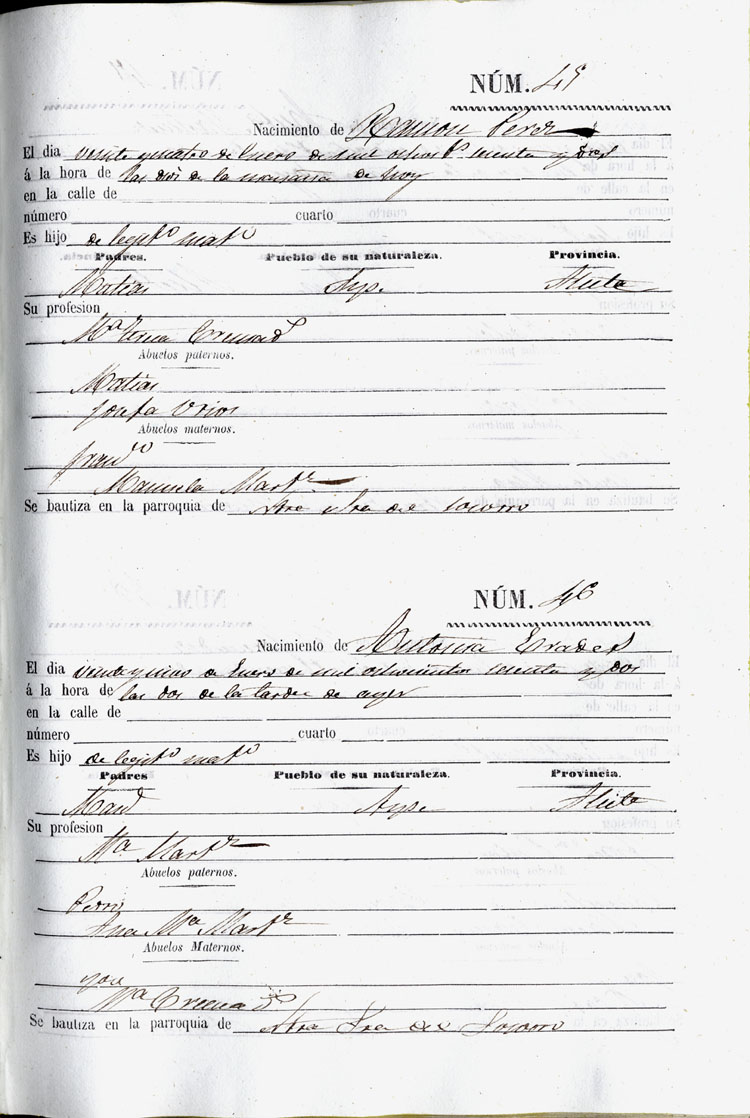 NÚM. 45
Nacimiento de Ramon Perez
El dia veinte y cuatro de Enero de mil ochos.s sesenta y dos
á la hora de las dos de la mañana de hoy
en la calle de
número cuarto
Es hijo de legit.o mat.o
Padres. Pueblo de su naturaleza. Provincia.
Matias Aspe Alicte
Su profesion
M.a Cremad.s
Abuelos paternos.
Matias
Josefa
Abuelos maternos.
Fran.co
Manuela Mart.z
Se bautiza en la parroquia de Ntra Sra del Socorro
NÚM. 46
Nacimiento de Antonia Erades
El dia veinte y cinco de Enero de mil ochocientos sesenta y dos
á la hora de las dos de la tarde de ayer
en la calle de
número cuarto
Es hijo de legit.o mat.o
Padres Pueblo de su naturaleza. Provincia.
Man.l Aspe Alicte
Su profesion
M.a Mart.z
Abuelos paternos.
Pedro
Ana M.a Mart.z
Abuelos Maternos.
José
M.a Cremad.s
Se bautiza en la parroquia de Ntra Sra del Socorro